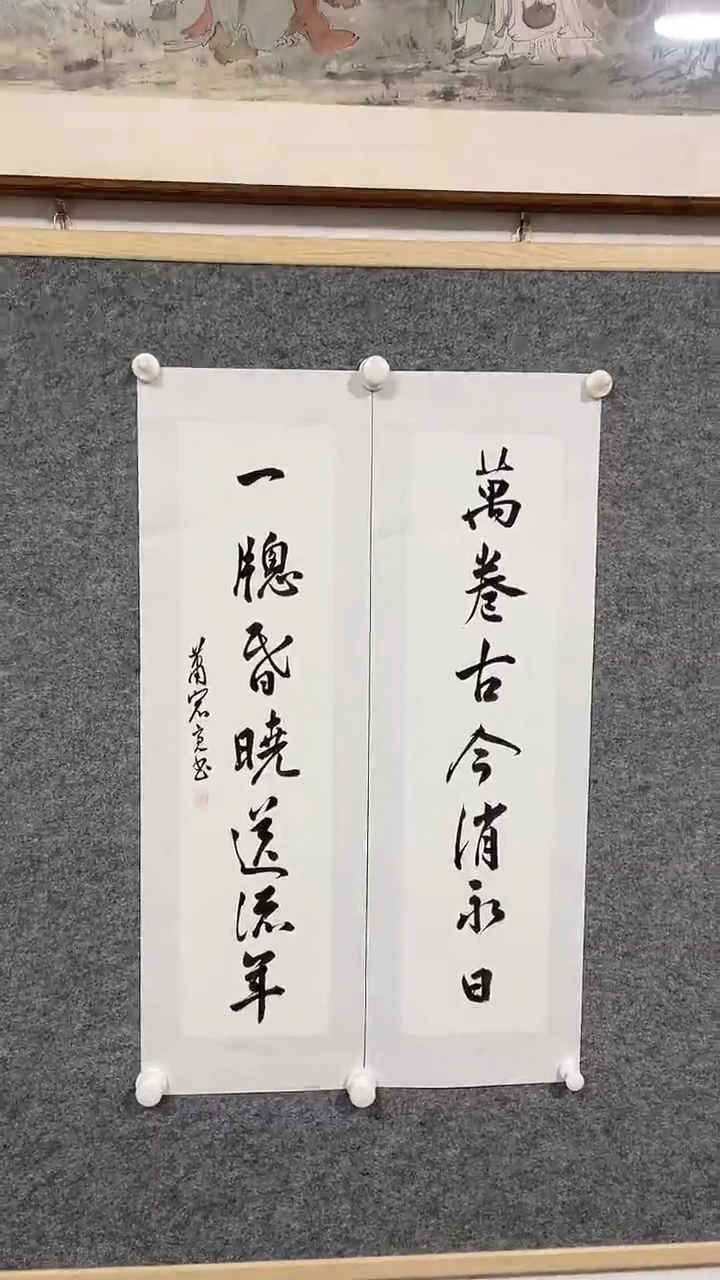 萬卷古今消永日
一牕昏曉送流年
蕭宏亮书